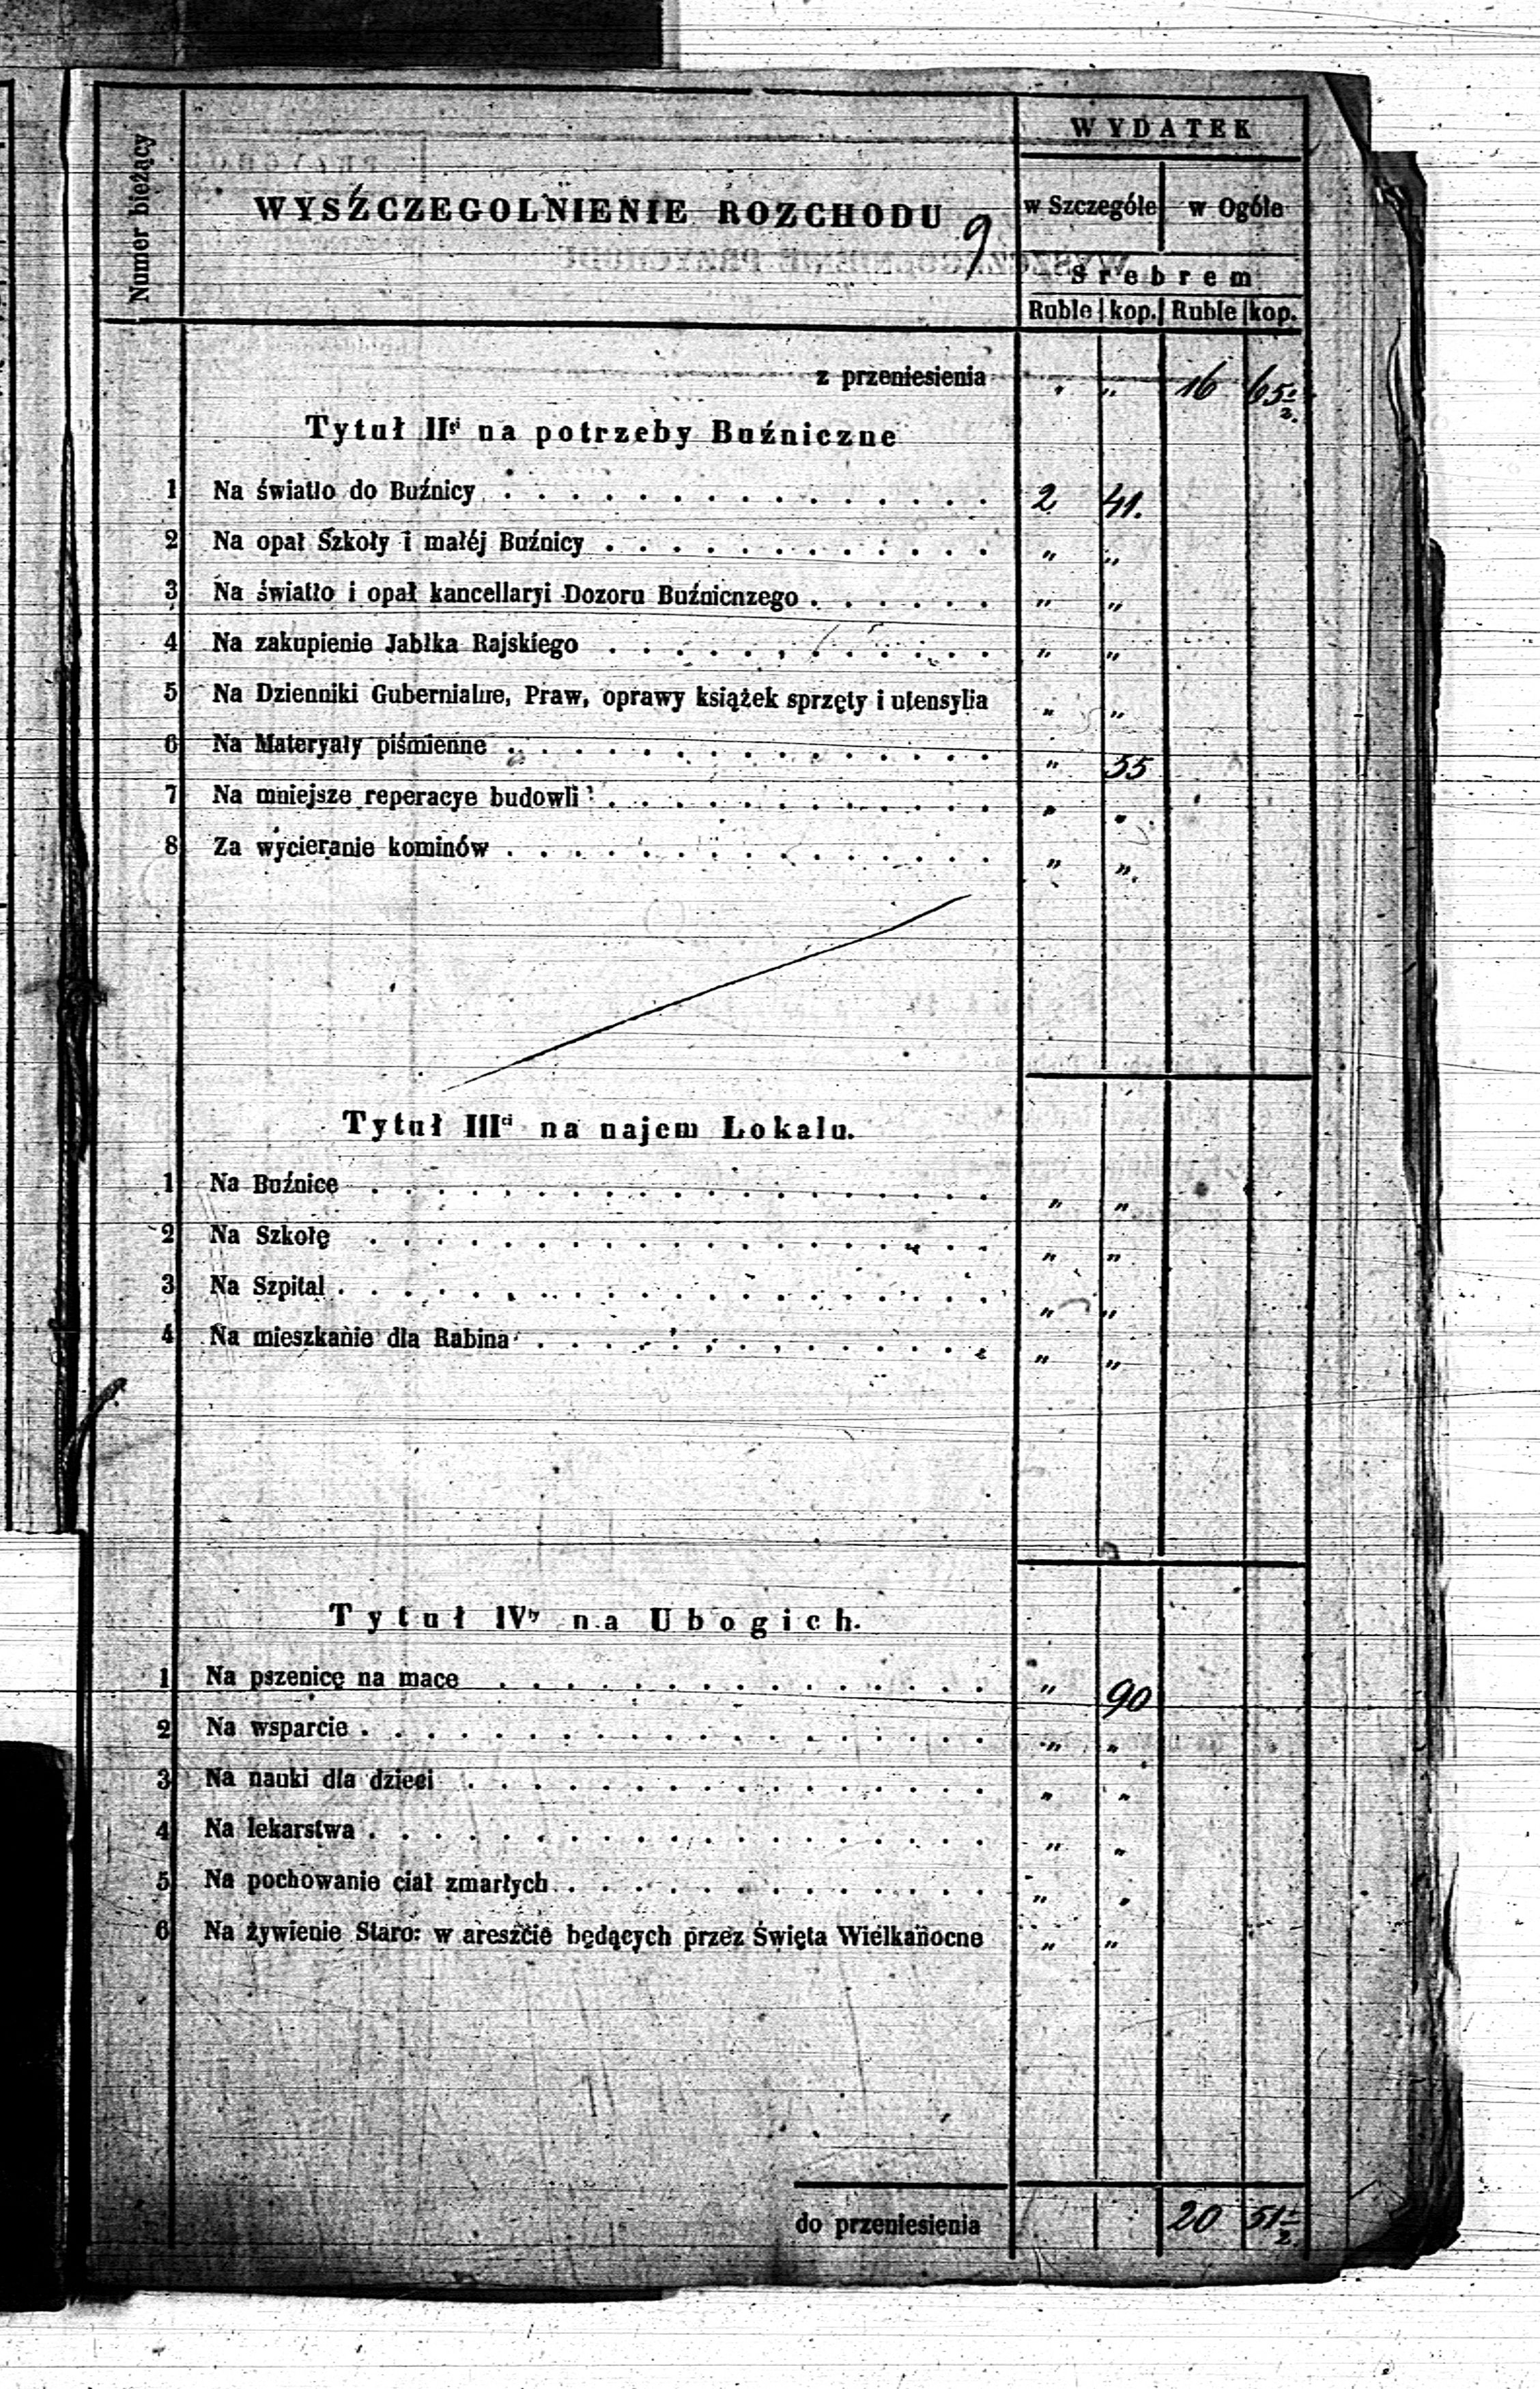 Numer bieżący
WYSZCZEGOLNIENIE ROZCHODU
9
WYDATEK
w Szczególe w Ogóle
Srebrem
Ruble kop. Ruble kop.
z przeniesienia „ „ 16 65½
Tytuł IIgi na potrzeby Buźniczne
1 Na światło do Buźnicy . . . . . . . . . . . . . . . 2 41.
2 Na opał Szkoły i małéj Buźnicy . . . . . . . . . . . . „ „
3 Na światło i opał kancellaryi Dozoru Buźnicnzego . . . . . . „ „
4 Na zakupienie Jabłka Rajskiego . . . . . . . . . . . . „ „
5 Na Dzienniki Gubernialne, Praw, oprawy książek sprzęty i utensylia „ „
6 Na Materyały piśmienne . . . . . . . . . . . . . . . „ 55
7 Na mniejsze reperacye budowli . . . . . . . . . . . . „ „
8 Za wycieranie kominów . . . . . . . . . . . . . . . „ „
Tytuł IIIci na najem Lokalu.
1 Na Buźnicę . . . . . . . . . . . . . . . . . . . „ „
2 Na Szkołę . . . . . . . . . . . . . . . . . . . „ „
3 Na Szpital . . . . . . . . . . . . . . . . . . . . „ „
4 Na mieszkanie dla Rabina . . . . . . . . . . . . . . „ „
Tytuł IVty na Ubogich.
1 Na pszenicę na mace . . . . . . . . . . . . . . . „ 90
2 Na wsparcie . . . . . . . . . . . . . . . . . . . „ „
3 Na nauki dla dzieci . . . . . . . . . . . . . . . . „ „
4 Na lekarstwa . . . . . . . . . . . . . . . . . . . „ „
5 Na pochowanie ciał zmarłych . . . . . . . . . . . . . „ „
6 Na żywienie Staro: w areszcie będących przez Święta Wielkanocne „ „
do przeniesienia 20 51½